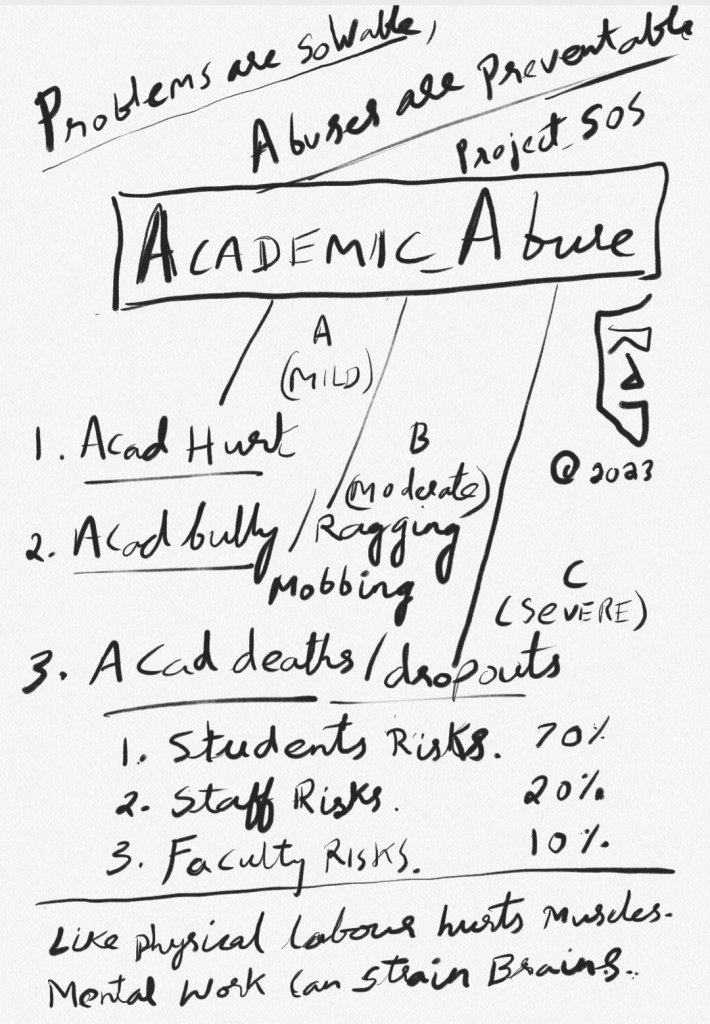 Problems are Solvable,
Abuses are Preventable
Project_SOS
ACADEMIC_Abuse
A
(MILD)
1. Acad Hurt
B
(Moderate)
© 2023
2. Acad bully / Ragging
Mobbing
C
(SEVERE)
3. Acad deaths / dropouts
1. Students Risks. 70%
2. Staff Risks. 20%
3. Faculty RISKS. 10%
Like physical labour hurts Muscles.
Mental Work Can Strain Brains.